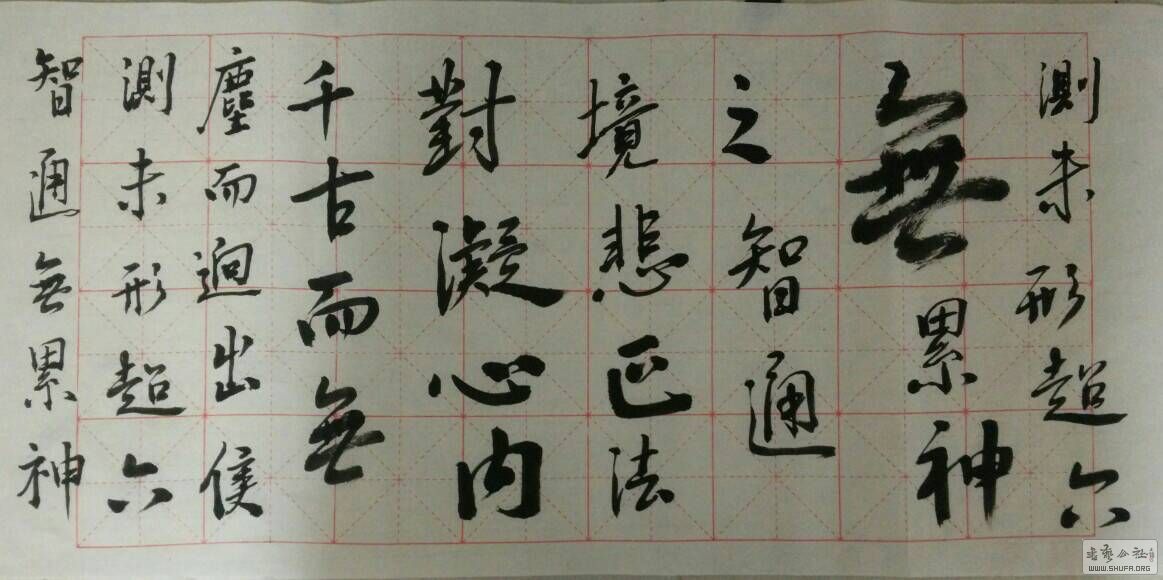 測未形超六
無累神
之智通
境悲正法
對凝心内
千古而無
塵而迥出侯
測未形超六
智通無累神
书艺公社
WWW.SHUFA.ORG